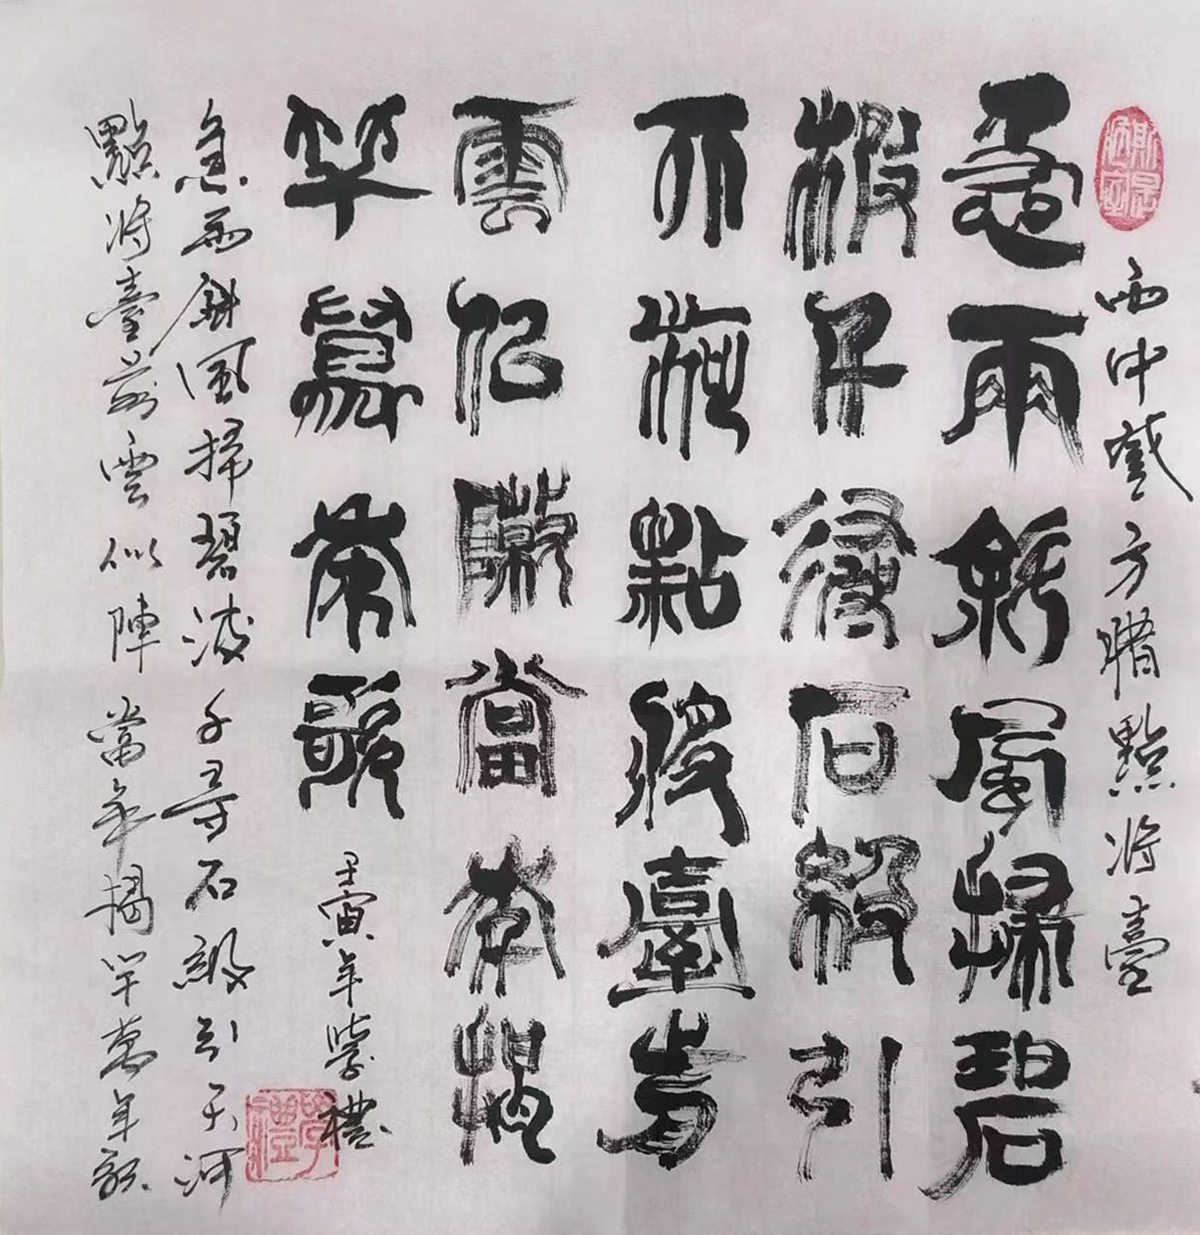 斯是陋室
雨中戲方腊點將臺
急雨斜風掃碧
波千尋石級引
天河點將臺前
雲似陣當年揭
竿萬年歌
壬寅年學禮
學禮
急雨斜風掃碧波千尋石級引天河
點將臺前雲似陣當年揭竿萬年歌